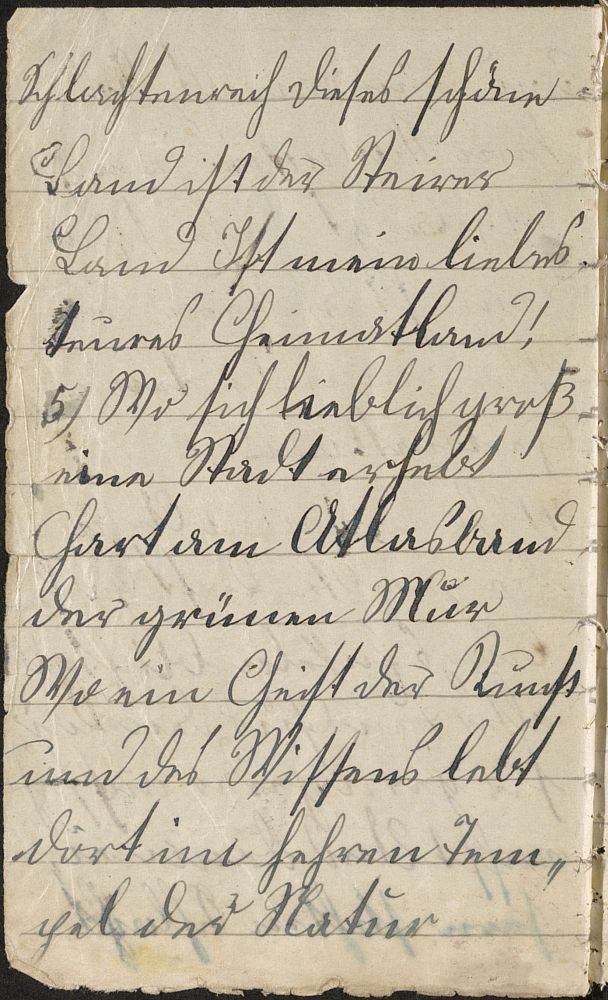 Schlachtenreich dieses schöne
Land ist der Steirer
Land Ist mein liebes
teures Heimatland!
5) Wo sich lieblich groß
eine Stadt erhebt
hart am Atlasband
der grünen Mur
Wo ein Geist der Kunst
und des Wissens lebt
dort im hehren Tem„
pel der Natur